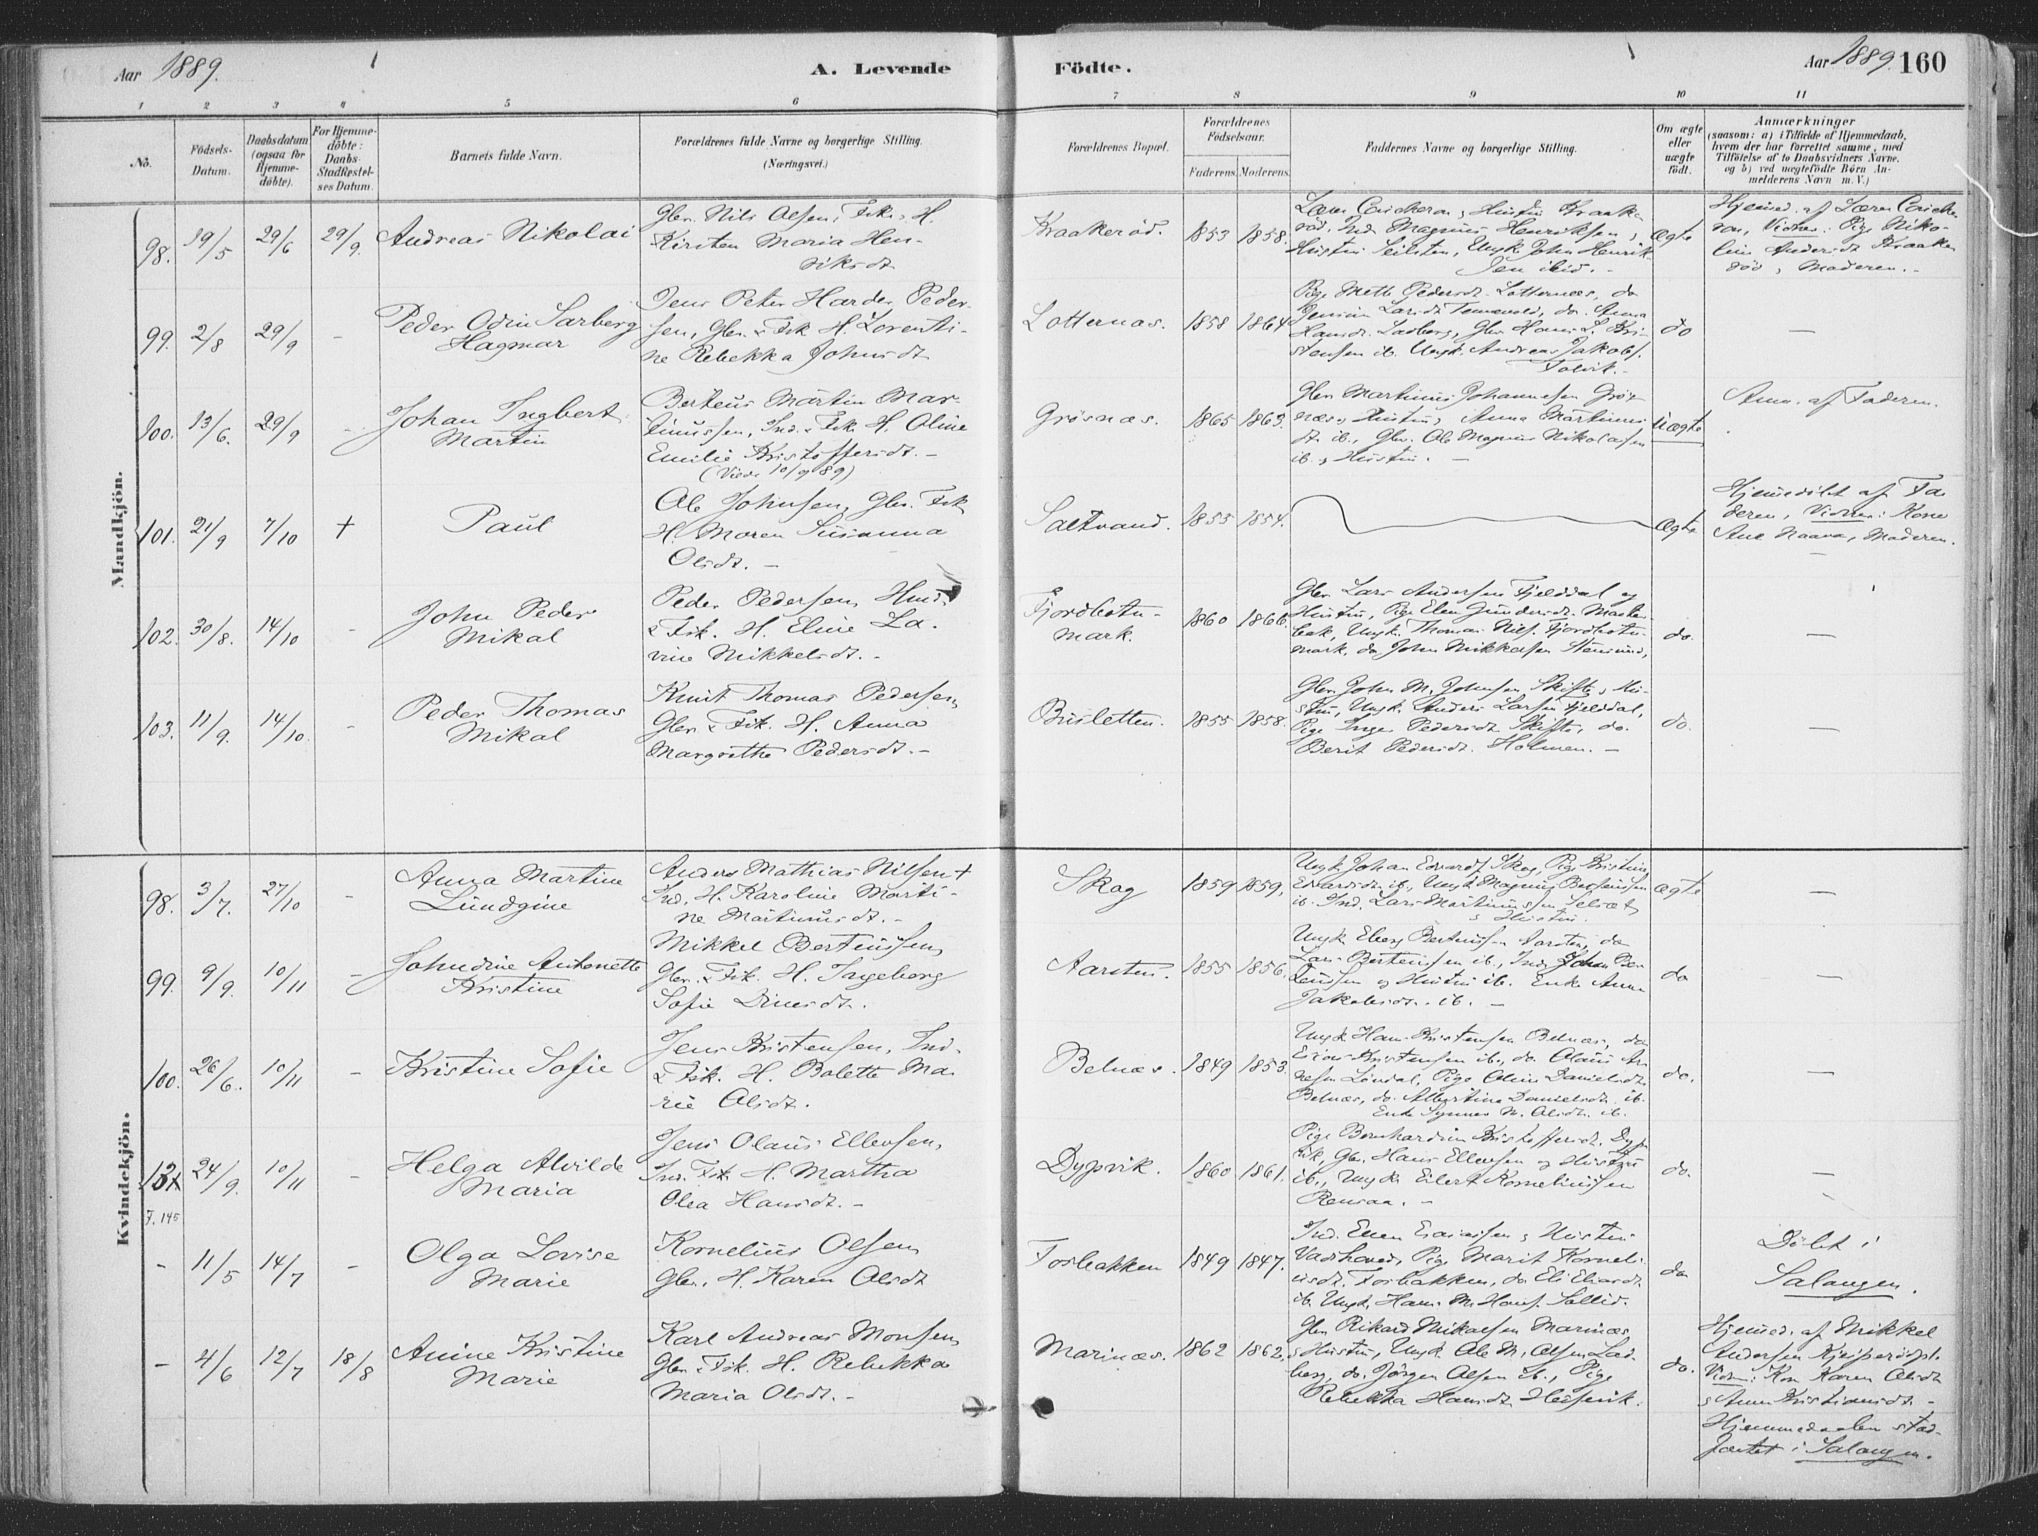 Aar 1889.
A. Levende
Födte.
Aar 1889. 160
1 2 3 4 5 6 7 8 9 10 11
No.
Födsels-
Datum.
Daabsdatum
(ogsaa for
Hjemme-
döbte).
For Hjemme-
döbte:
Daabs-
Stadfæstel-
ses Datum.
Barnets fulde Navn.
Forældrenes fulde Navne og borgerlige Stilling.
(Næringsvei.)
Forældrenes Bopæl.
Forældrenes
Födselsaar.
Faderens. Moderens.
Faddernes Navne og borgerlige Stilling.
Om ægte
eller
uægte
födt.
Anmærkninger
(saasom: a) i Tilfælde af Hjemmedaab,
hvem der har forrettet samme, med
Tilföielse af to Daabsvidners Navne.
og b) ved uægtefödte Börn An-
melderens Navn m. V.)
Mandkjön.
98. 19/5 29/6 29/9. Andreas Nikolai
Gbr. Nils Olsen, Fsk., H.
Kirsten Maria Hen-
riksdt.
Kraakeröd. 1853 1858.
Hustru Seilsten, Ungk. John Henrik-
sen ibid. -
Ægte
Vidner: Pige Niko-
Moderen. -
99. 2/8 29/9 -
Peder Odin Sarberg
Hagmar
Jens Peter Harder Peder-
sen, Gbr. & Fsk. H. Lorenti-
ne Rebekka Johnsdt.
Lotternæs. 1858 1864
Pige Mette Pedersdt. Lotternæs, do
do
-
100. 13/6. 29/9 -
Johan Ingbert
Martin
Berteus Martin Mar-
tinussen, Ind. & Fsk. H. Oline
Emilie Kristoffersdt. -
(Viede 10/9 89)
Grösnæs. 1865 1863.
Gbr. Martinus Johannesen Grös-
næs & Hustru, Anna Martinus-
dt. ib., Gbr. Ole Magnus Nikolaisen
ib. & Hustru. -
Uægte
Anm. af Faderen.
101. 21/9 7/10 +
Paul
Ole Johnsen, Gbr. Fsk.
H. Maren Susanna
Olsdt. -
Saltvand. 1855 1854.
Ægte
Hjemmedöbt af Fa-
deren, Vidner: Kone
Ane Maria, Moderen.
-
102. 30/8. 14/10 -
John Peder
Mikal
Peder Pedersen, Husm.
& Fsk. H. Eline La-
vine Mikkelsdt. -
Fjordbotn-
mark. 1860 1866.
Gbr. Lars Andersen Fjelddal og
Hustru, Pige Elen Gundersdt. Marken-
bak, Ungk. Thomas Nils. Fjordbotn-
mark, do. John Mikkelsen Stensund,
do.
-
103. 11/9. 14/10. -
Peder Thomas
Mikal
Knut Thomas Pedersen,
Gbr. & Fsk. H. Anna
Margrethe Pedersdt. -
Brusletten. 1855 1858.
Gbr. John M. Johnsen, Skifte, & Hu-
stru, Ungk. Anders Larsen Fjelddal,
Pige Inger Pedersdt. Skifte, do.
Berit Pedersdt. Holmen. -
do.
-
Kvindekjön.
98. 3/7. 27/10 -
Anna Martine
Lundgine
Anders Mathias Nilsen +
Ind. H. Karoline Marti-
ne Martinusdt. -
Skog 1859 1859.
Ungk. Johan Edvards. Skog, Pige Kristine
Edvardsdt. ib., Ungk. Magnus Berteussen
ib. Ind. Lars Martinussen Selsæt
& Hustru.
Ægte
-
99. 9/9. 10/11 -
Johndine Antonette
Kristine
Mikkel Berteussen,
Gbr. & Fsk. H. Ingeborg
Sofie Dinesdt.
Aarsten. 1855 1856.
Ungk. Eberg Berteussen Aarsten, do
Lars Berteussen ib., Ind. Johan Ber-
teussen og Hustru ib. Enke Anna
Jakobsdt. ib. -
do
-
100. 26/6. 10/11 -
Kristine Sofie
Jens Kristensen, Ind.
& Fsk. H. Bolette Ma-
rie Olsdt.
Belnæs. 1849 1853.
Ungk. Hans Kristensen Belnæs, do
Esaias Kristensen ib., do. Olaus An-
Pige Oline Danielsdt.
Belnæs, do. Albertine Danielsdt. ib.
Enke Synnes M. Olsdt. ib.
do.
-
24/9. 10/11 -
F. 145
Helga Alvilde
Maria
Jens Olaus Ellevsen,
Ind. Fsk. H. Martha
Olea Hansdt. -
Dypvik. 1860 1861.
Pige Bernhardine Kristoffersdt. Dyp-
vik, Gbr. Hans Ellevsen og Hustru
ib., Ungk. Eilert Kornelinssen
Rensaa. -
do.
-
- 11/5 14/7 -
Olga Lovise
Marie
Kornelius Olsen,
Gbr. H. Karen Olsdt.
Forbakken 1849 1847.
Ind. Enen Esaiassen & Hustru
Vadhoved, Pige Marit Korneli-
usdt. Forbakken, do. Eli Eliasdt.
ib. Ungk. Hans M. Hans. Sollid.
do
Döbt i
Salangen.
- 4/6 12/7 18/8
Anine Kristine
Marie
Karl Andreas Monsen,
Gbr. & Fsk. H. Rebekka
Maria Olsdt. -
Marinæs. 1862 1862.
Gbr. Rikard Mikalsen Marinæs
& Hustru, Ungk. Ole M. Olsen Lad-
berg, do. Jörgen Olsen ib., Pige
Rebekka Hansdt.
do.
Hjemmed. af Mikkel
Andersen
Vidn: Kone Karen Olsdt.
& Anne Kristiansdt. -
Hjemmedaaben stad-
fæstet i Salangen.